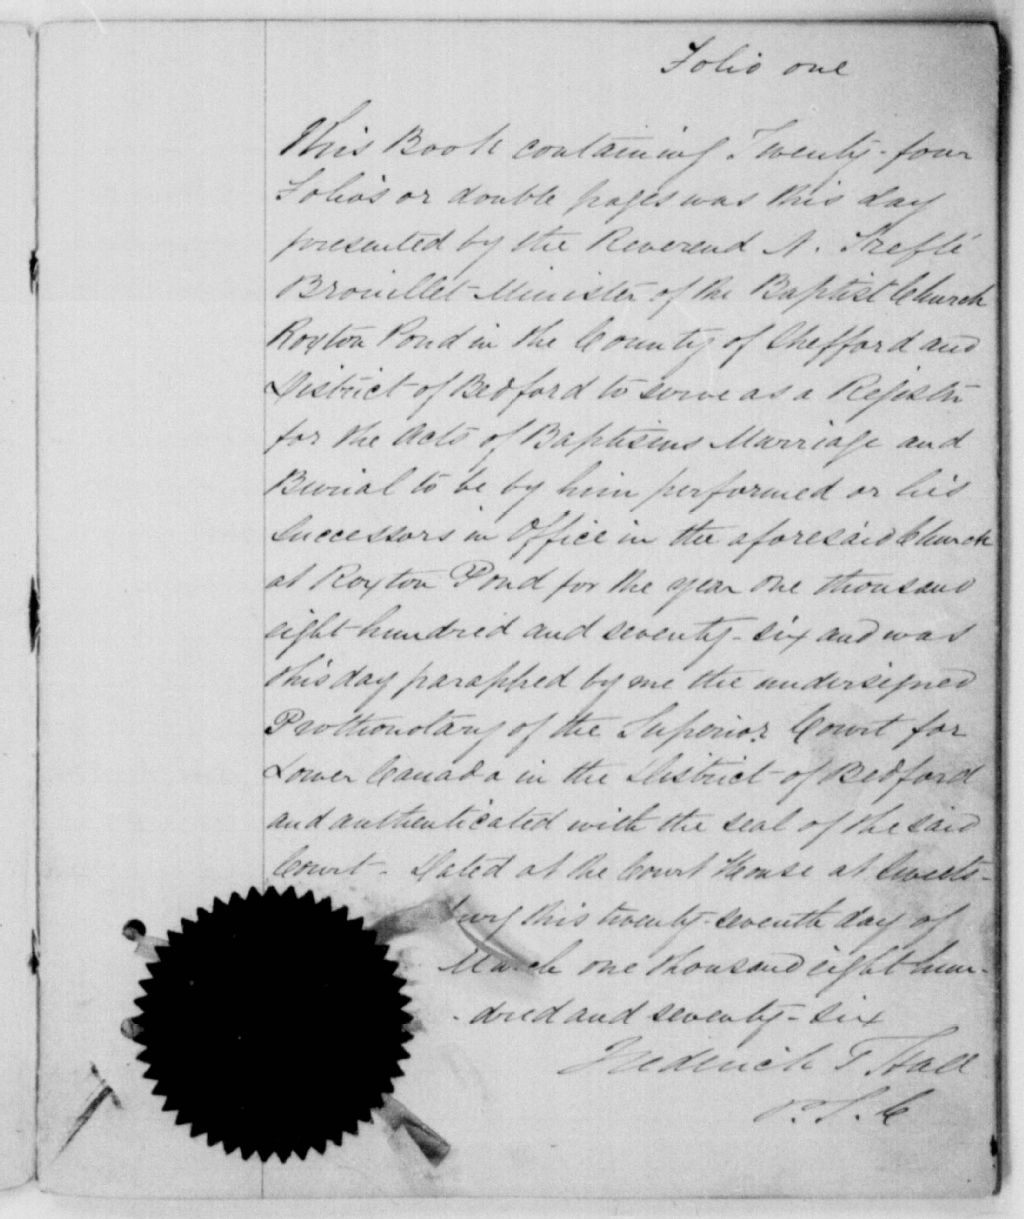 Folio one
This Book containing Twenty-four
Folios or double pages was this day
presented by the Reverend A. Trefflé
Brouillet Minister of the Baptist Church
Roxton Pond in the County of Shefford and
District of Bedford to serve as a Register
for the Acts of Baptisms Marriage and
Burial to be by him performed or his
Successors in Office in the aforesaid Church
at Roxton Pond for the year one thousand
eight hundred and seventy-six and was
this day parapped by me the undersigned
Prothonotary of the Superior Court for
Lower Canada in the District of Bedford
and authenticated with the seal of the said
Court. Dated at the Court House at Sweets-
burg this twenty-seventh day of
March one thousand eight hun-
-dred and seventy-six
Frederick T Hall
P. S. C